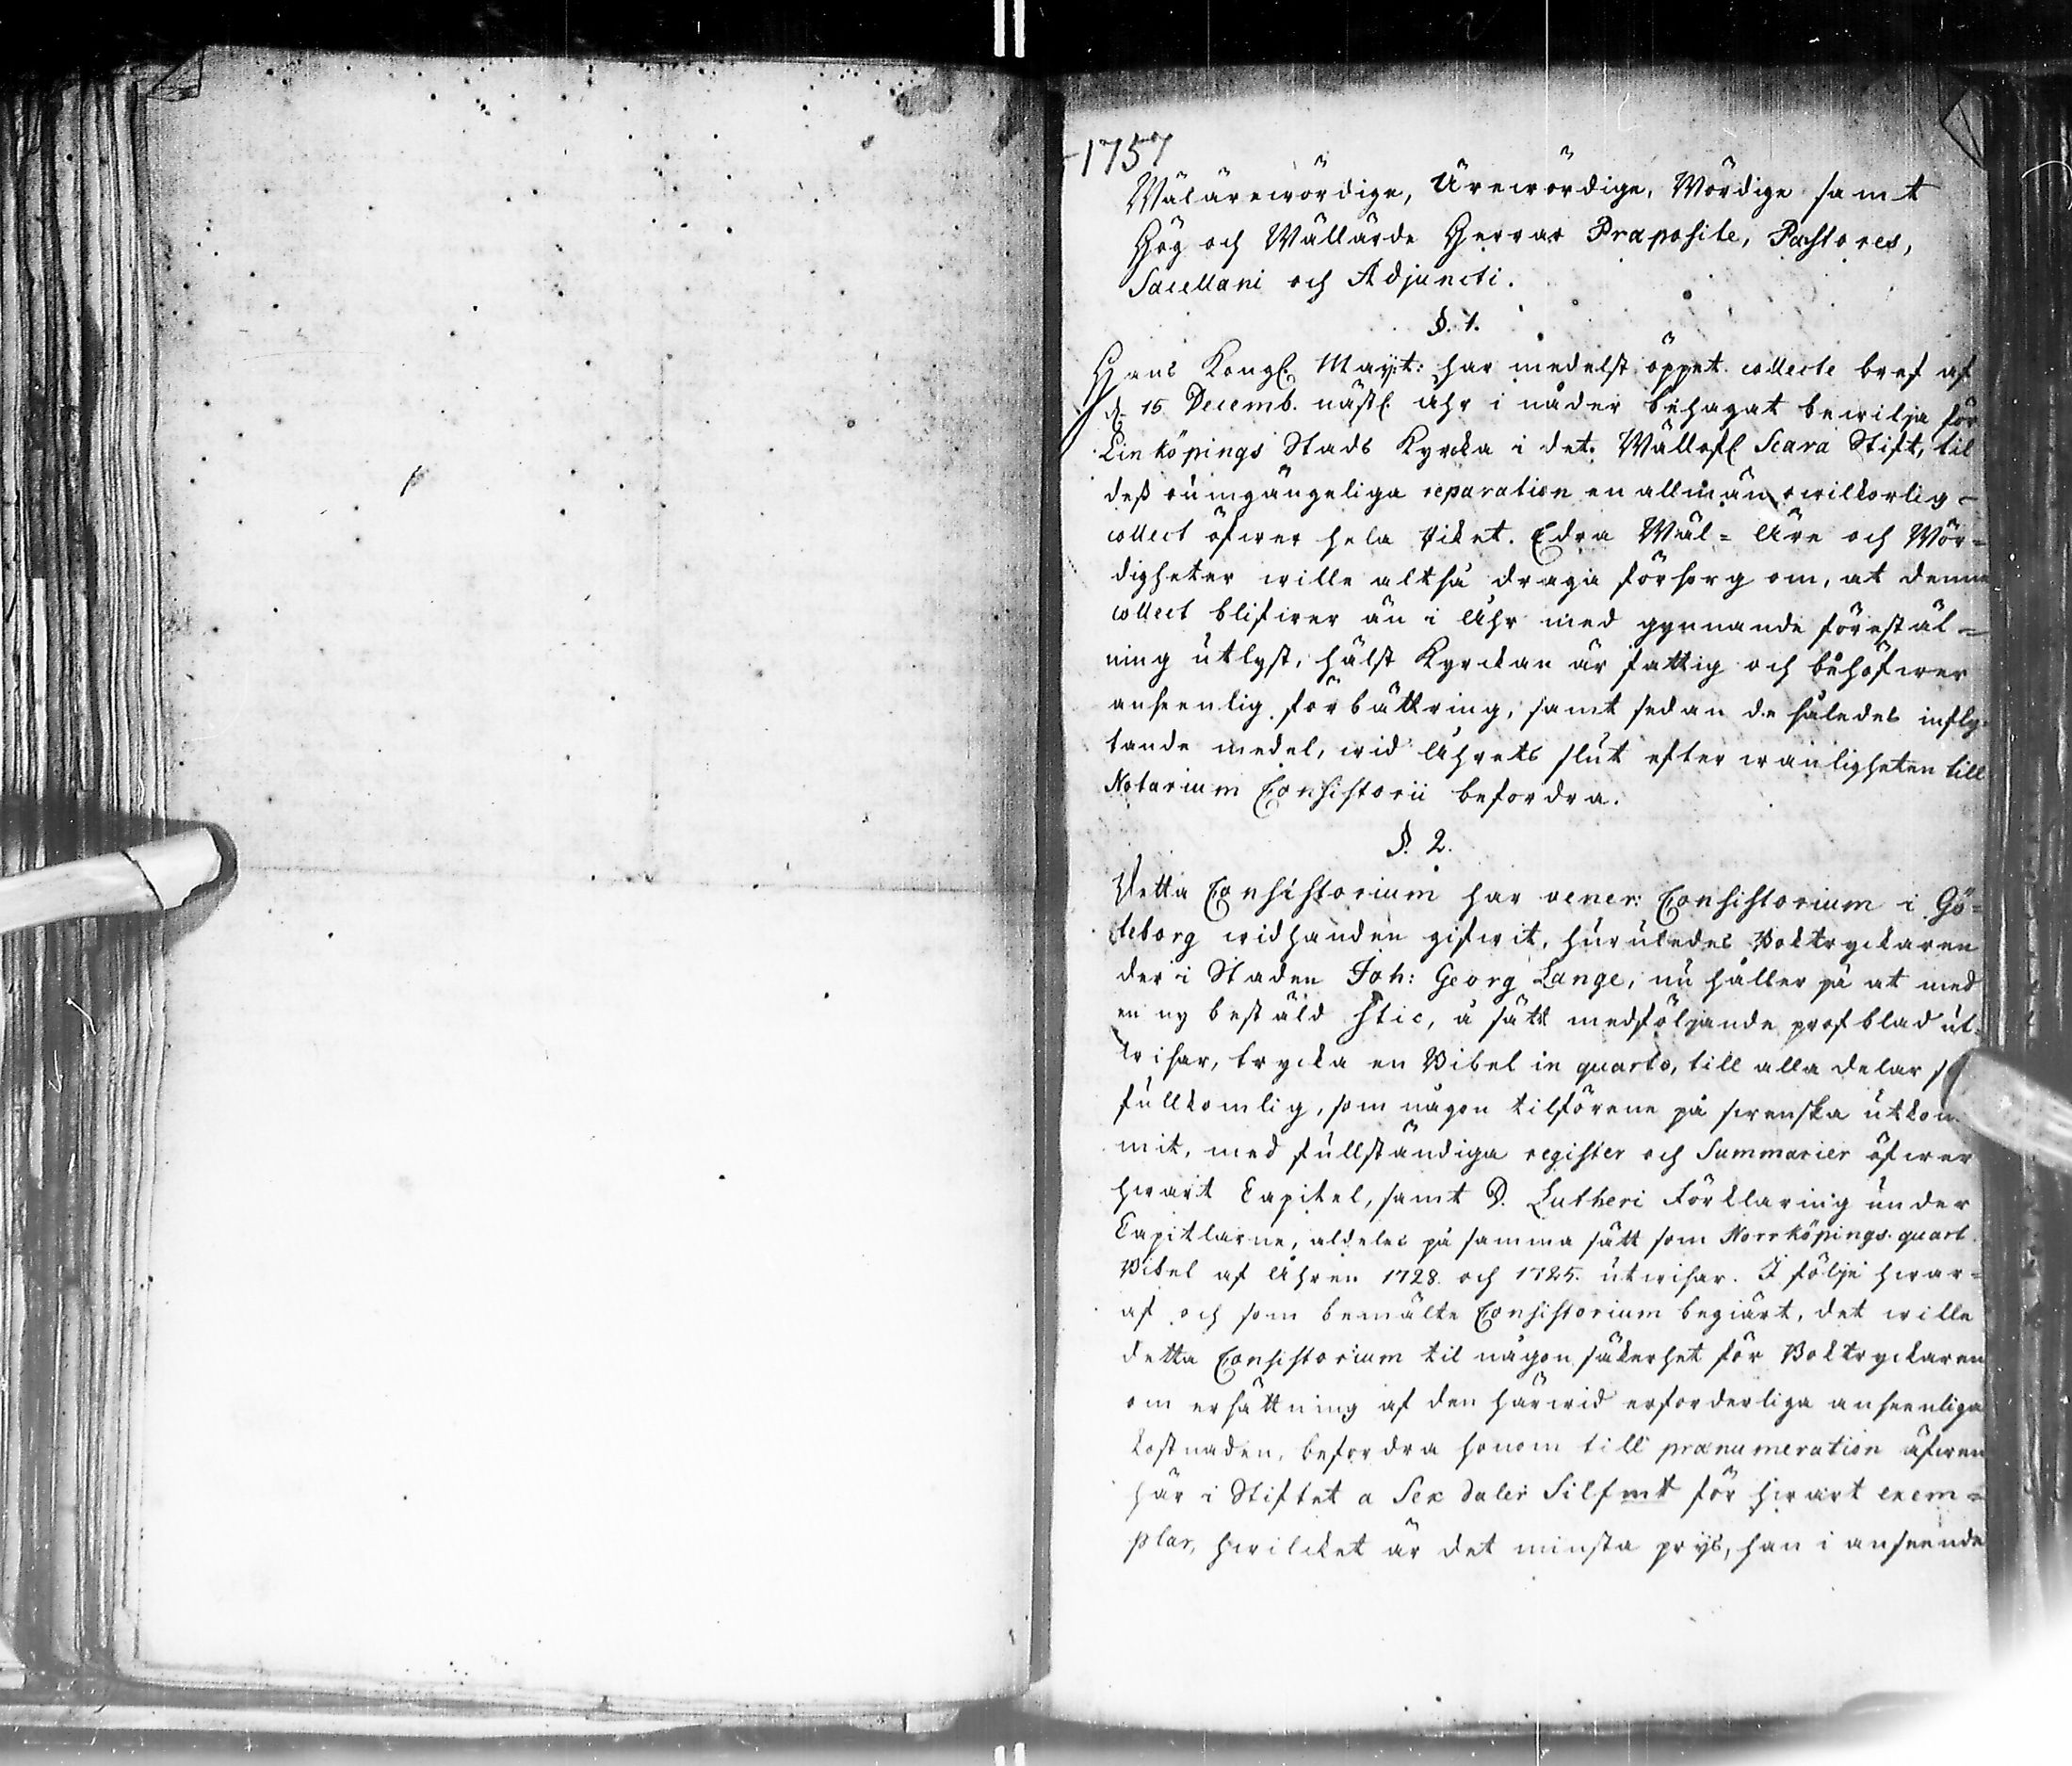 1757
Wälärewördige, Ärewördige, Wördige samt
Hög och Wällärde Herrar Præposite, Pastores,
Sacellani och Adjuncti.
§. 1.
Hans Kongl. Mayt: har medelst öppet collecte bref af
d. 15 Decemb. nästl. åhr i nåder behagat bewilja för
Linköpings Stads Kyrcka i det Wällofl. Scara Stift, til
deß oumgängeliga reparation en allmän wilkorlig
collect öfwer hela riket. Edra Wäl- Äre och Wör-
digheter wille altså draga försorg om, at denne
collect blifwer än i åhr med gynnande förestäl-
ning utlyst, hälst Kyrckan är fattig och behöfwer
anseenlig förbättring, samt sedan de således infly-
tande medel, wid åhrets slut efter wanligheten till
Notarium Consistorii befordra.
§. 2.
Detta Consistorium har vener: Consistorium i Gö-
teborg widhanden gifwit, huruledes Boktryckaren
der i Staden Joh: Georg Lange, nu håller på at med
en ny bestäld stic, å sätt medföljande prof blad ut-
wisar, trycka en Bibel in quarto, till alla delar
fullkomlig, som någon tilförene på swenska utkom-
mit, med fullständiga register och Summarier öfwer
hwart Capitel, samt D. Lutheri Förklaring under
Capitlarne, aldeles på samma sätt som Norrköpings quart
Bibel af åhren 1728. och 1725. utwisar. I följe hwar-
af och som bemälte Consistorium begiärt, det wille
detta Consistorium til någon säkerhet för Boktryckaren
om ersättning af den härwid erforderliga anseenliga
kostnaden, befordra honom till prænumeration äfwen
här i Stiftet a Sex daler Silfmt för hwart exem-
plar, hwilcket är det minsta prijs, han i anseende